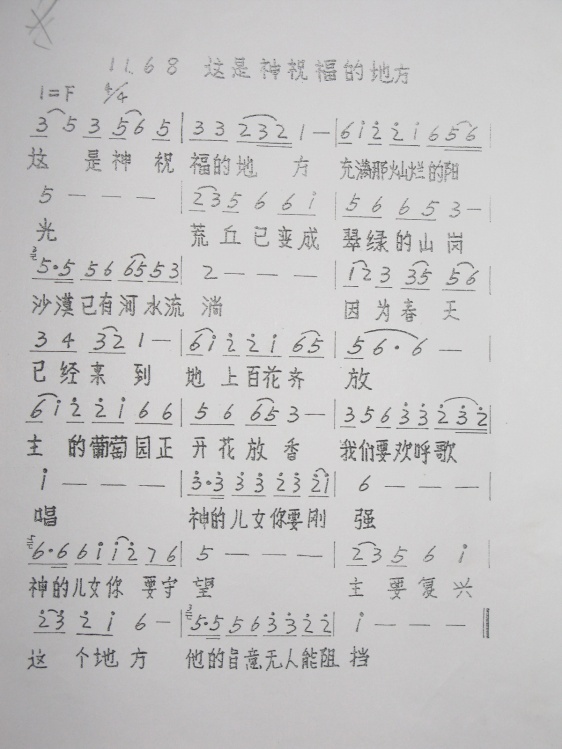 1168 这是神祝福的地方
1=F 4/4
3 5 3 5 6 5 | 3 3 2 3 2 1 — | 6 i 2 2 i 6 5 6 |
这 是 神 祝 福的地 方 充满那灿烂的阳
5 — — — | 2 3 5 6 6 i | 5 6 6 5 3 — |
光 荒丘已变成 翠绿的山岗
5·5 5 6 6 5 5 3 | 2 — — — | 1 2 3 3 5 5 6 |
沙漠已有河水流 淌 因为春天
3 4 3 2 1 — | 6 i 2 2 i 6 5 | 5 6·6 — |
已经来到 地上百花齐 放
6 i 2 2 i 6 6 | 5 6 6 5 3 — | 3 5 6 3 3 2 3 2 |
主 的葡萄园正 开花放香 我们要欢呼歌
i — — — | 3·3 3 3 2 3 2 i | 6 — — — |
唱 神的儿女你要刚 强
6·6 6 i i 2 7 6 | 5 — — — | 2 3 5 6 i |
神的儿女你 要守 望 主要复兴
2 3 2 i 6 — | 5·5 5 6 3 3 2 2 | i — — — ‖
这 个地方 他的旨意无人能阻 挡